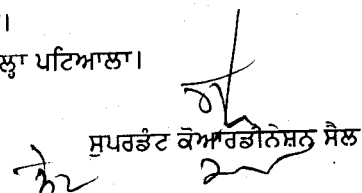 ।
ਲ੍ਹਾ ਪਟਿਆਲਾ।
ਸੁਪਰਡੰਟ ਕੋਆਰਡੀਨੇਸ਼ਨ ਸੈਲ